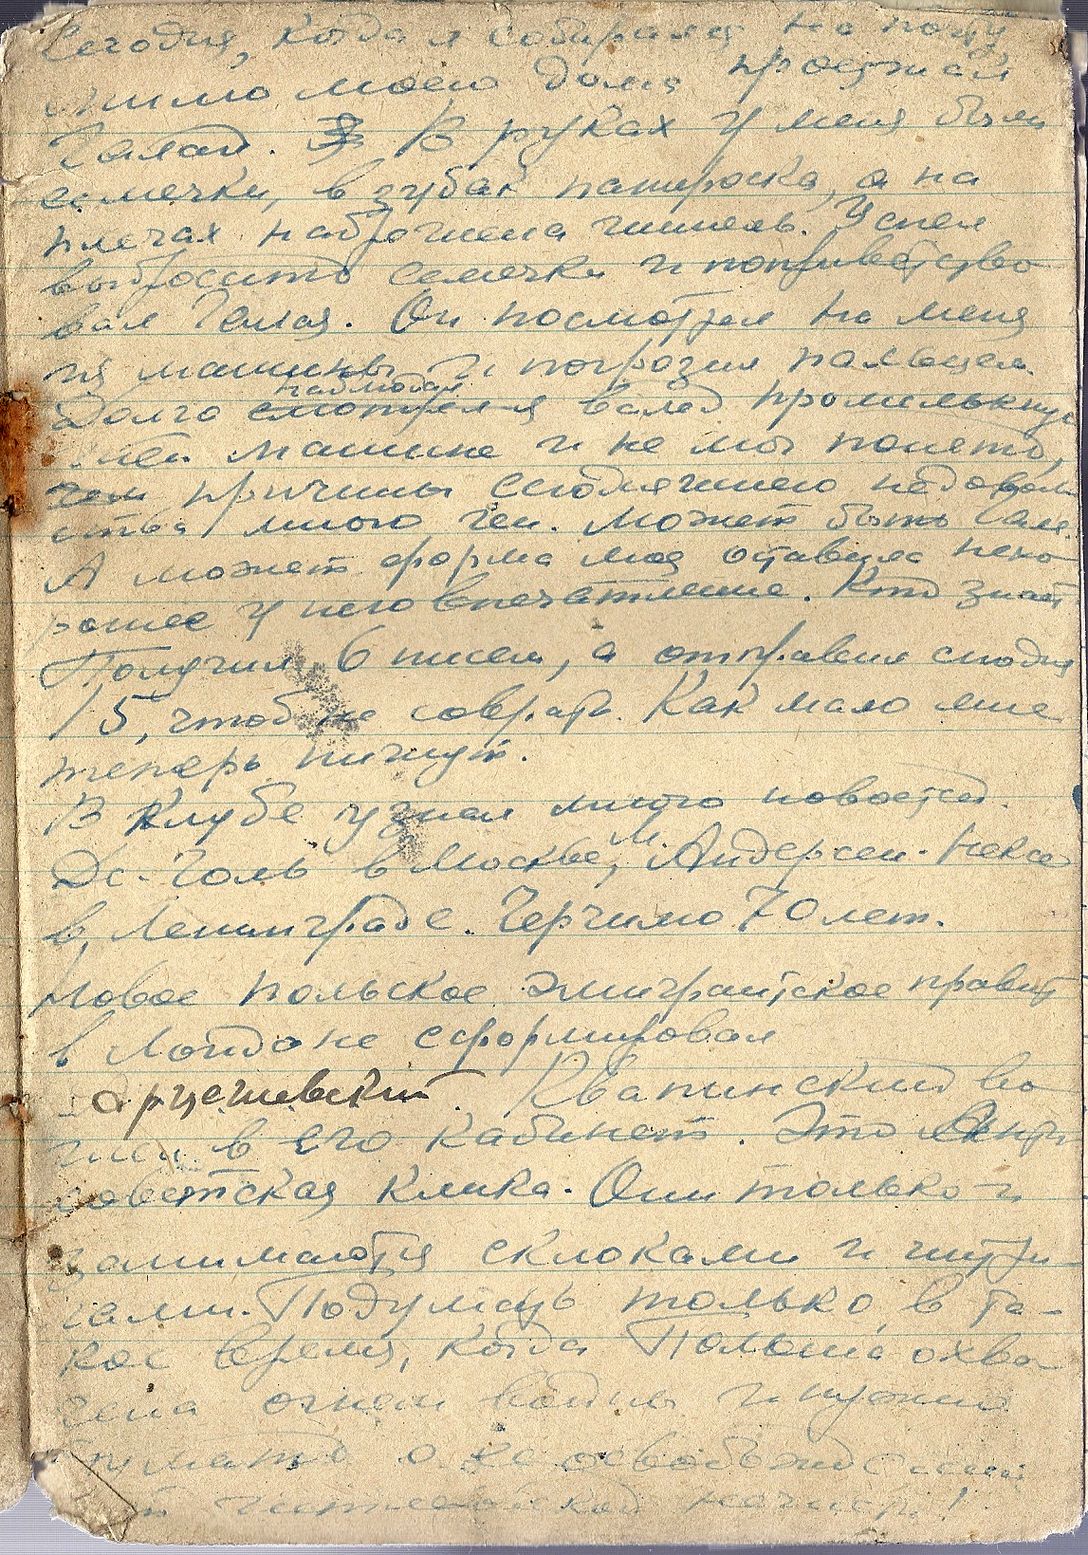 Сегодня, когда я собирался на почту
мимо моего дома проезжал
Галай. В руках у меня были
семечки, в зубах папироска, а на
плечах наброшена шинель. Успел
выбросить семечки и поприветство
вал Галая. Он посмотрел на меня
из машины и погрозил пальцем.
наблюдал
Долго смотрел я вслед промелькнув
шей машине и не мог понять,
чем причины сегодняшнего недоволь
ства мною ген. Может быть Галя.
А может форма моя оставила нехо
рошее у него впечатление. Кто знает
Получил 6 писем, а отправил сегодня
15, чтоб не соврать. Как мало мне
теперь пишут.
В клубе узнал много новостей.
Де-Голь в Москве, М. Андерсен-Нексе
в Ленинграде. Черчилю 70 лет.
Новое польское эмигрантское правит
в Лондоне сформировал
Арцешевский. Квапинский во
шел в его кабинет. Это анти
советская клика. Они только и
занимаются склоками и интри
гами. Подумать только, в та-
кое время, когда Польша охва-
чена огнем войны и нужно
думать о ее освобождении
от гитлеровской нечисти!